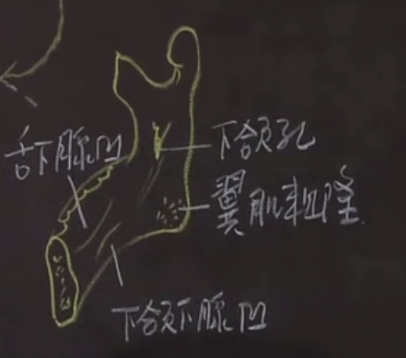 舌下腺凹
下颌孔
翼肌粗隆
下颌下腺凹